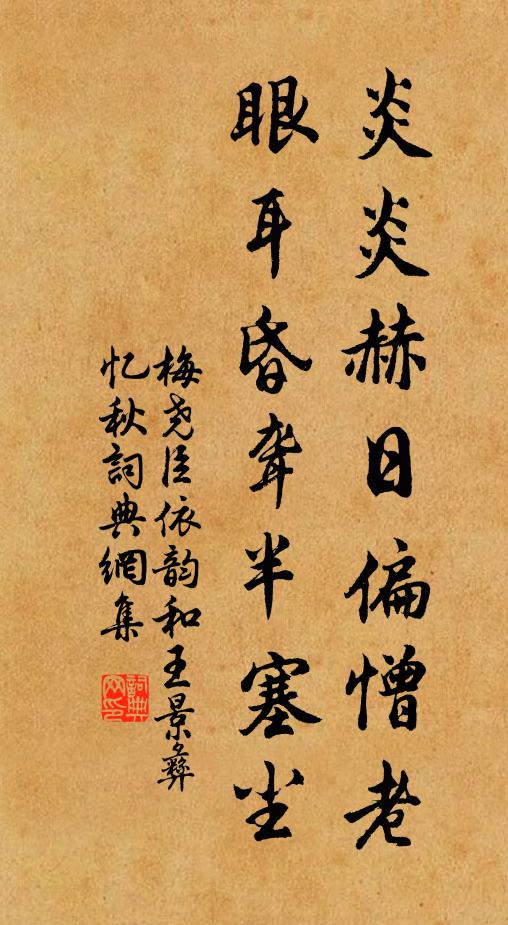 炎炎赫日偏憎老
眼耳昏聋半塞尘
梅尧臣依韵和王景彝
忆秋詞典網集
詞典
网印